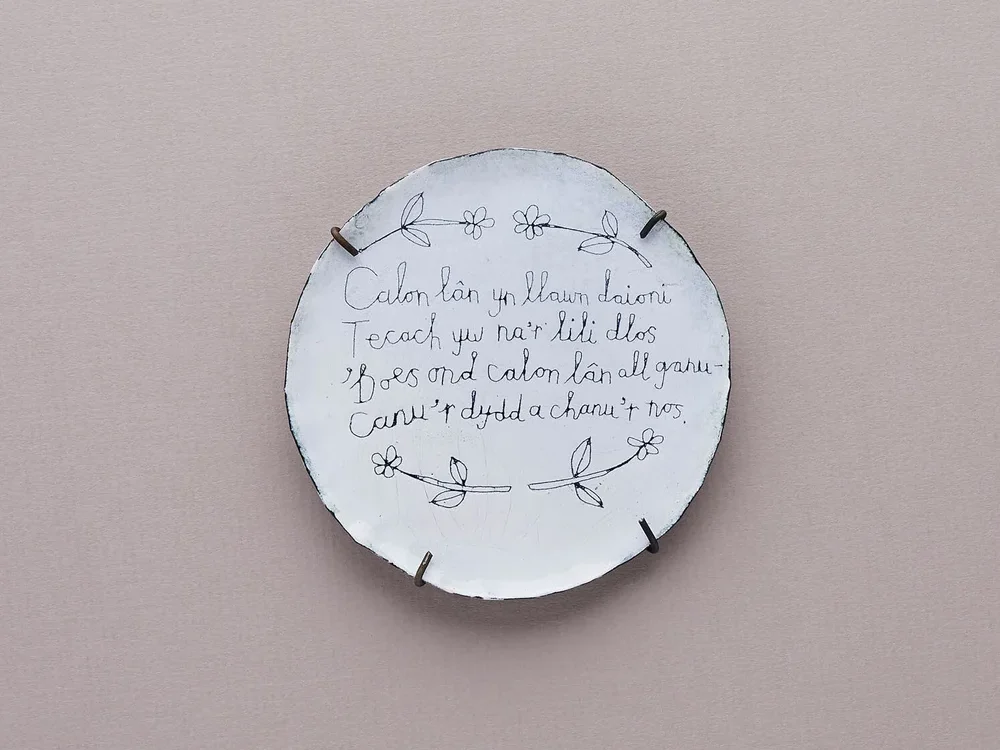 Calon lân yn llawn daioni
Tecach yw na'r lili dlos
'Does ond calon lân all ganu-
Canu'r dydd a chanu'r nos.